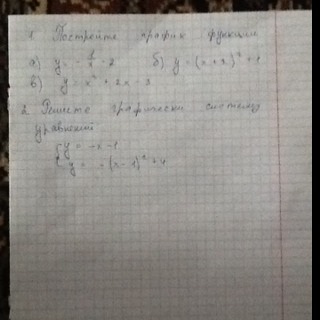 1. Постройте график функции
а) y = - - 2 б) y = (x + 2)² + 1
в) y = x² + 2x - 3
2. Решите графически систему
уравнений
{ y = -x - 1
y = -(x - 1)² + 4